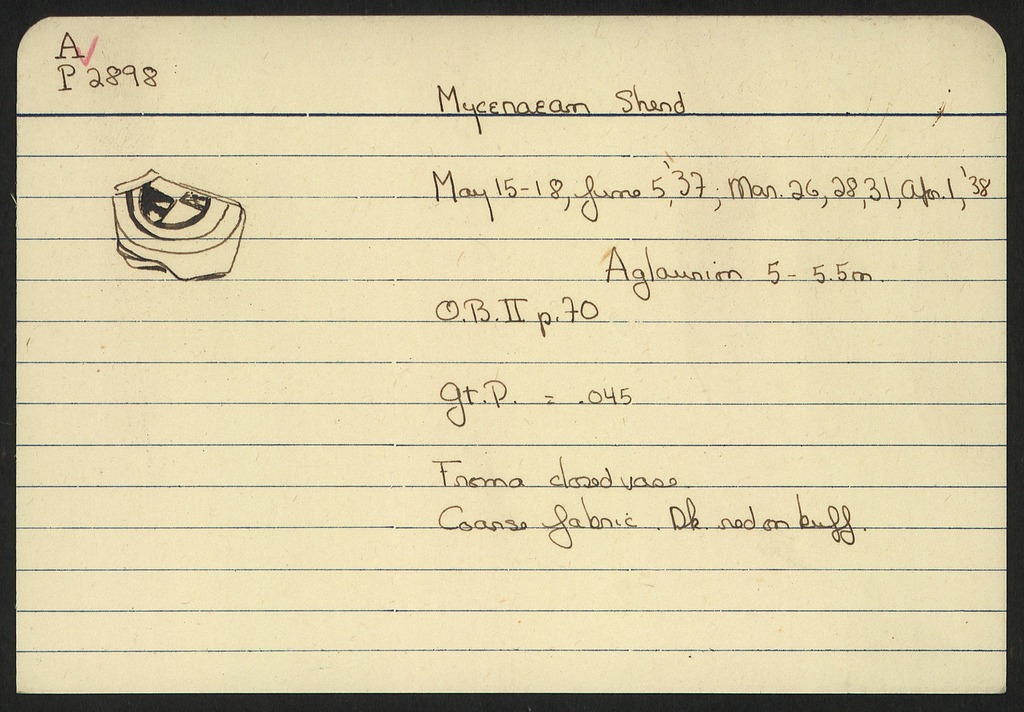 A
P 2898
Mycenaean Sherd
May 15-18, June 5, '37; Mar. 26, 28, 31, Apr. 1, '38
Aglaurion 5 - 5.5m
O.B. II p. 70
Gt. P. = .045
From a closed vase.
Coarse fabric. Dk. red on buff.